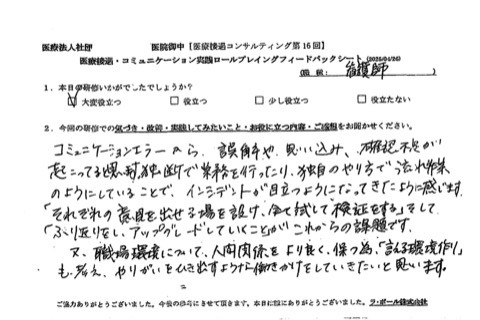 医療法人社団 医院御中【医療接遇コンサルティング第16回】
医療接遇・コミュニケーション実践ロールプレイングフィードバックシート(2025/04/26)
(職種: 看護師 )
1．本日の研修いかがでしたでしょうか？
☑大変役立つ □役立つ □少し役立つ □役立たない
2．今回の研修での気づき・改善・実践してみたいこと・お役に立つ内容・ご感想をお聞かせください。
コミュニケーションエラーから、誤解や、思い込み、確認不足が
起こってる現状。独断で業務を行ったり、独自のやり方で流れ作業
のようにしていることで、インシデントが目立つようになってきたように感じます。
「それぞれの意見を出せる場を設け、全て試して検証をする」そして
「ふり返りをし、アップグレードしていくことが」これからの課題です。
又、職場環境について、人間関係をより良く、保つ為、「言える環境作り」
も考え、やりがいをひき出すような働きかけをしていきたいと思います。
ご協力ありがとうございました。今後の参考にさせて頂きます。本日は誠にありがとうございました。 ラ・ポール株式会社